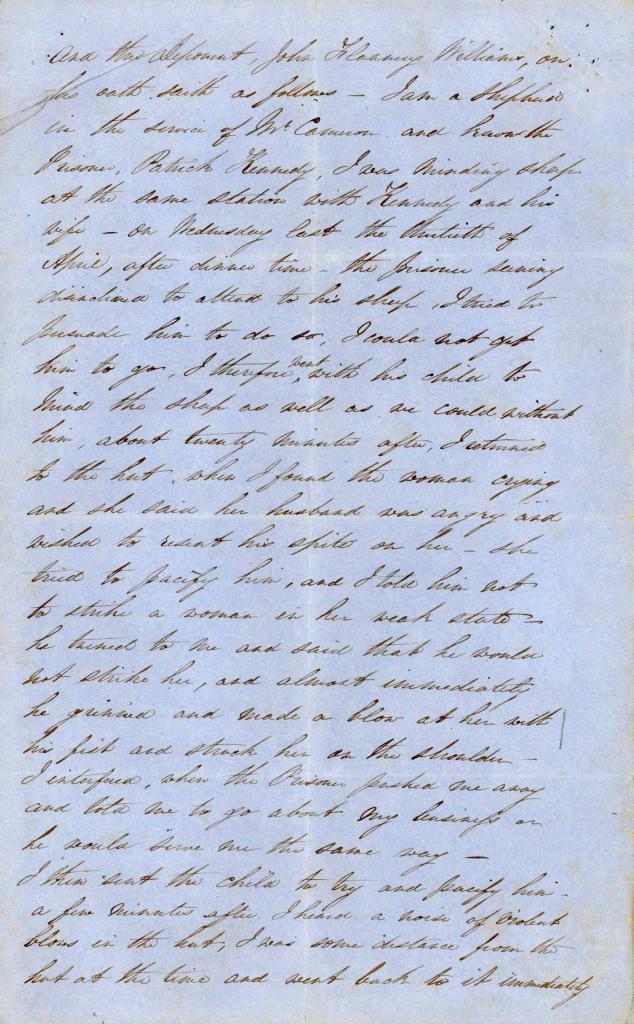 And this deponent, John Flannery Williams, on
his oath saith as follows – I am a Shepherd
in the service of Mr. Cameron and know the
Prisoner, Patrick Kennedy, I was minding sheep
at the same station with Kennedy and his
wife – on Wednesday last the thirtieth of
April, after dinner time – the prisoner seeming
disinclined to attend to his sheep, I tried to
persuade him to do so, I could not get
him to go, I therefore went with his child to
mind the sheep as well as we could without
him, about twenty minutes after, I returned
to the hut, when I found the woman crying
and she said her husband was angry and
wished to resent his spite on her – she
tried to pacify him, and I told him not
to strike a woman in her weak state –
he turned to me and said that he would
not strike her, and almost immediately
he grinned and made a blow at her with
his fist and struck her on the shoulder –
I interfered, when the Prisoner pushed me away
and told me to go about my business or
he would serve me the same way –
I then sent the child to try and pacify him –
a few minutes after I heard a noise of violent
blows in the hut, I was some distance from the
hut at the time and went back to it immediately